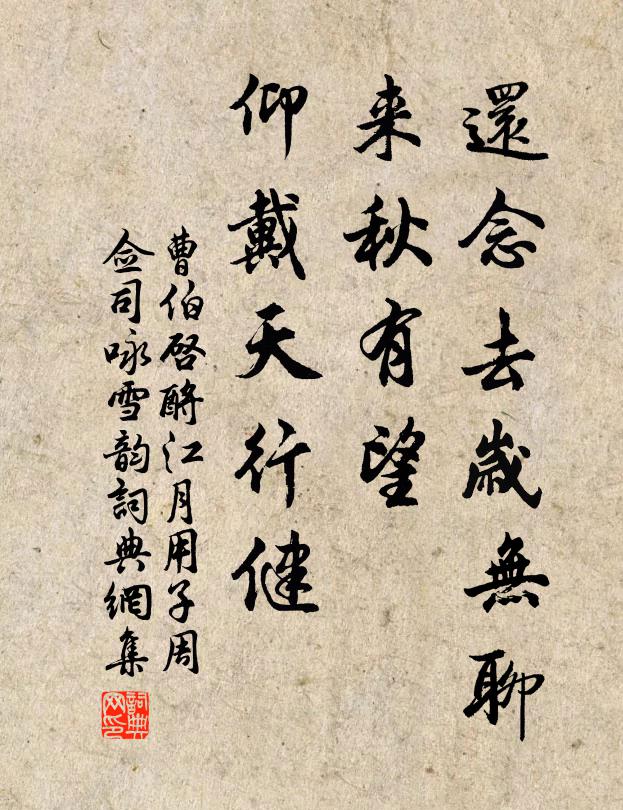 還念去歲無聊
来秋有望
仰戴天行健
曹伯啓酹江月用子周
僉司咏雪韵詞典網集
詞典
网印